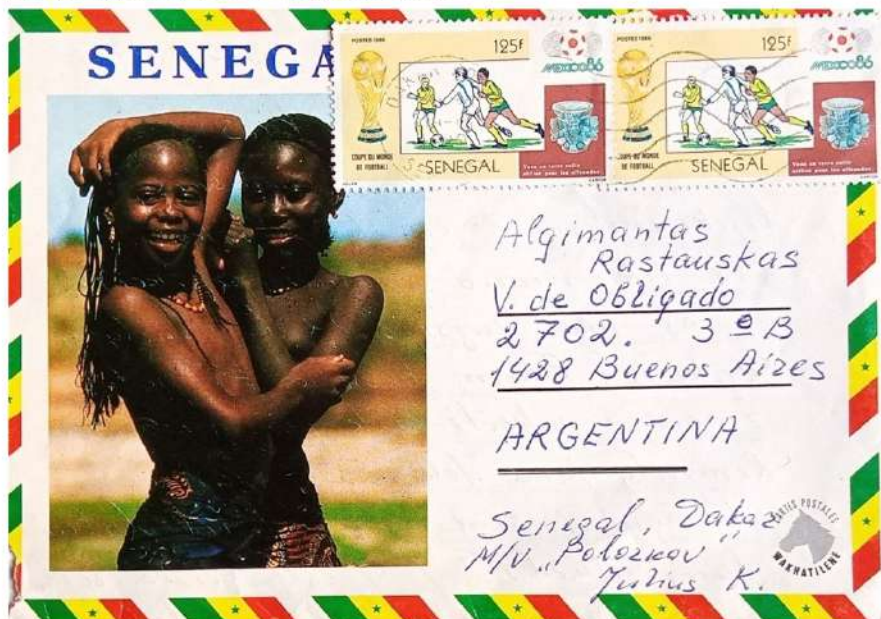 SENEGA
POSTES 1986
125F
MEXICO86
COUPE DU MONDE
DE FOOTBALL
SENEGAL
Vase en terre cuite
POSTES 1986
125F
MEXICO86
COUPE DU MONDE
DE FOOTBALL
SENEGAL
Vase en terre cuite
Algimantas
Rastauskas
V. de Obligado
2702. 3º B
1428 Buenos Aires
ARGENTINA
Senegal, Dakar
M/V „Polozkov”
Julius K.
CARTES POSTALES
WAKHATILENE